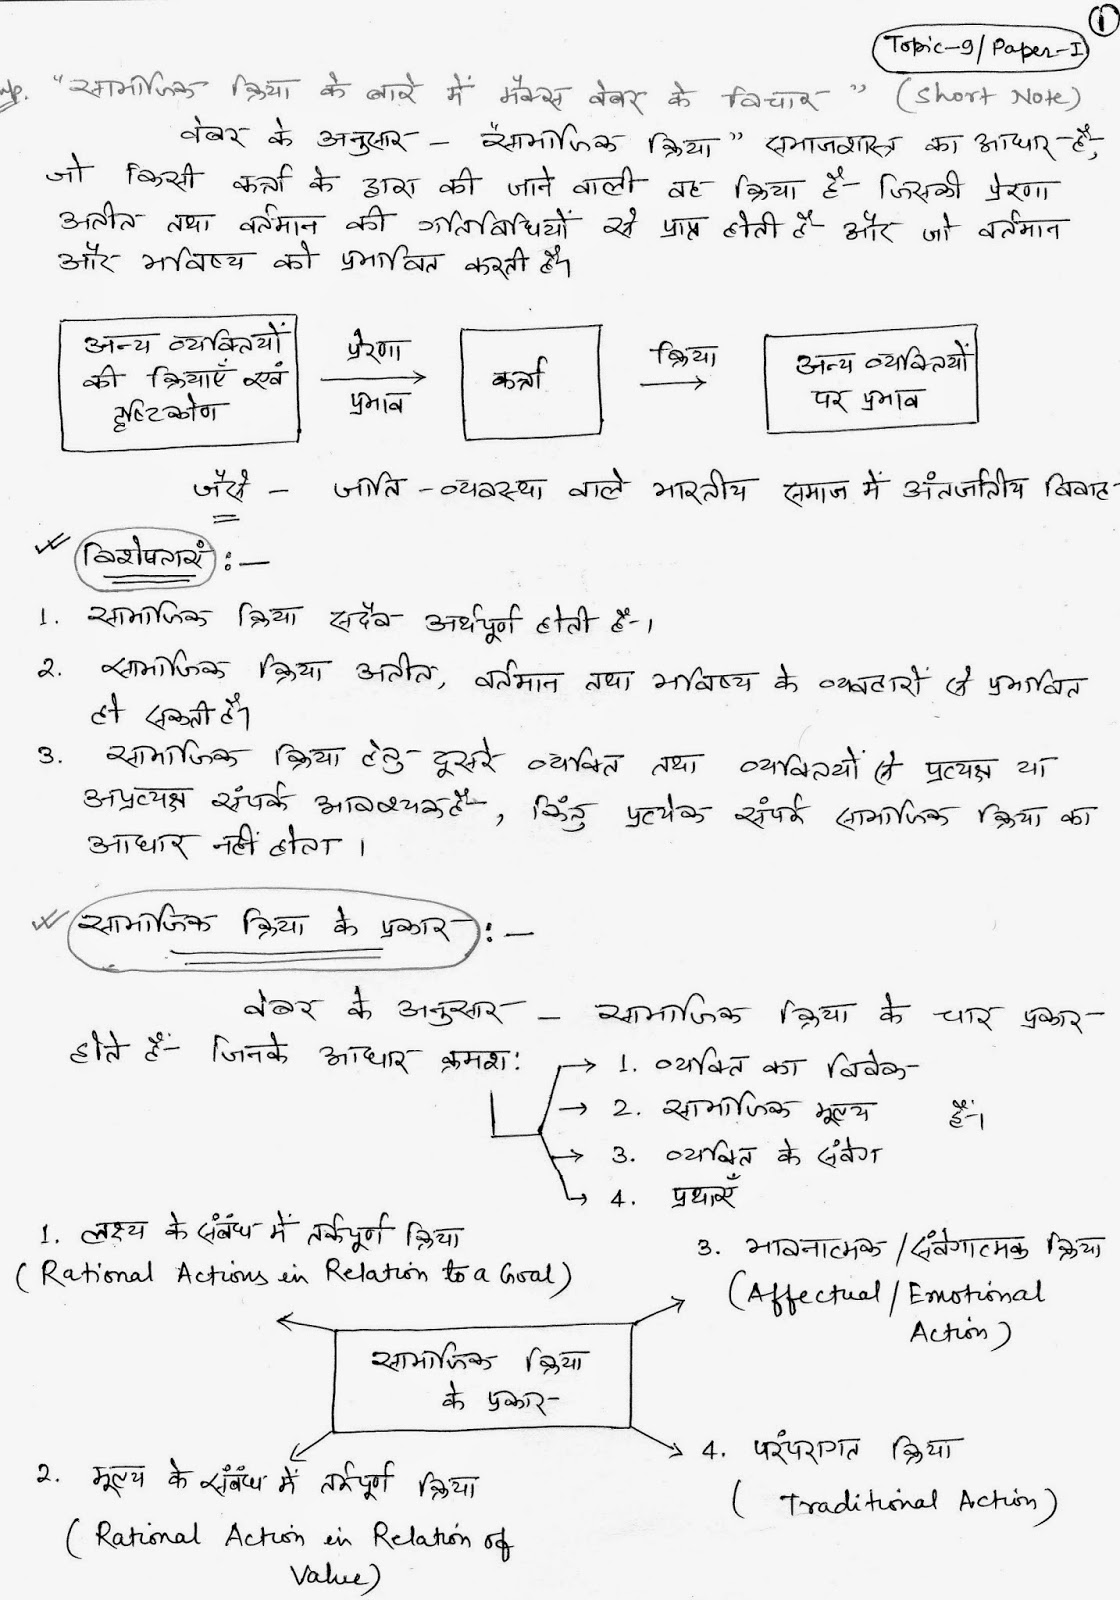 1
Topic-9/Paper-I
Imp. "सामाजिक क्रिया के बारे में मैक्स वेबर के विचार" (Short Note)
वेबर के अनुसार – "सामाजिक क्रिया" समाजशास्त्र का आधार है,
जो किसी कर्त्ता के द्वारा की जाने वाली वह क्रिया है जिसकी प्रेरणा
अतीत तथा वर्तमान की गतिविधियों से प्राप्त होती है और जो वर्तमान
और भविष्य को प्रभावित करती है।
अन्य व्यक्तियों
की क्रियाएँ एवं
दृष्टिकोण
प्रेरणा
प्रभाव
कर्त्ता
क्रिया
अन्य व्यक्तियों
पर प्रभाव
जैसे – जाति-व्यवस्था वाले भारतीय समाज में अंतर्जातीय विवाह
विशेषताएं :–
1. सामाजिक क्रिया सदैव अर्थपूर्ण होती है।
2. सामाजिक क्रिया अतीत, वर्तमान तथा भविष्य के व्यवहारों से प्रभावित
हो सकती है।
3. सामाजिक क्रिया हेतु दूसरे व्यक्ति तथा व्यक्तियों से प्रत्यक्ष या
अप्रत्यक्ष संपर्क आवश्यक है, किंतु प्रत्येक संपर्क सामाजिक क्रिया का
आधार नहीं होता।
सामाजिक क्रिया के प्रकार :–
वेबर के अनुसार – सामाजिक क्रिया के चार प्रकार
होते हैं जिनके आधार क्रमश:
1. व्यक्ति का विवेक
2. सामाजिक मूल्य
3. व्यक्ति के संवेग
4. प्रथाएँ
हैं।
1. लक्ष्य के संबंध में तर्कपूर्ण क्रिया
(Rational Actions in Relation to a Goal)
3. भावनात्मक/संवेगात्मक क्रिया
(Affectual/Emotional
Action)
सामाजिक क्रिया
के प्रकार
2. मूल्य के संबंध में तर्कपूर्ण क्रिया
(Rational Action in Relation of
Value)
4. परंपरागत क्रिया
(Traditional Action)